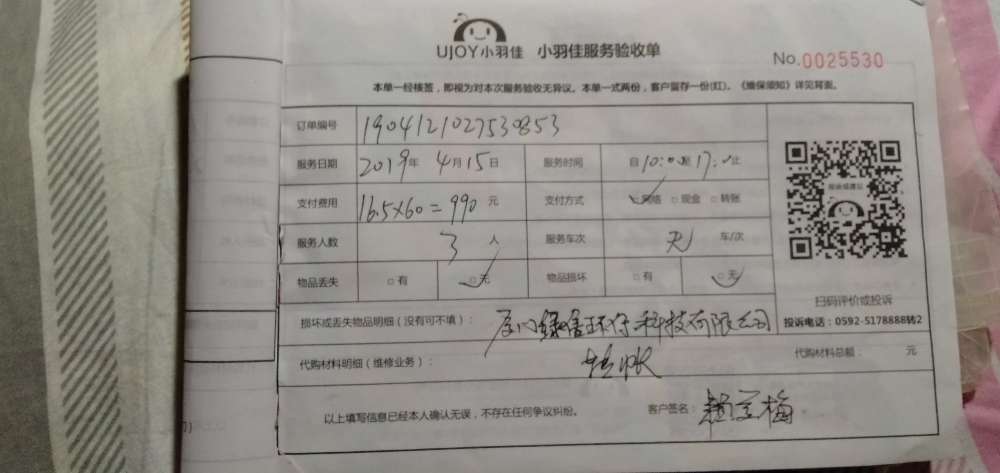 UJOY小羽佳 小羽佳服务验收单
No.0025530
本单一经核签，即视为对本次服务验收无异议。本单一式两份，客户留存一份(红)。《维保须知》详见背面。
订单编号 1904121027530853
服务日期 2019年 4月15日 服务时间 自10:00至17:00止
支付费用 16.5×60=990元 支付方式 网络 □现金 □转账
服务人数 3人 服务车次 无 车/次
物品丢失 □有 □无 物品损坏 □有 □无
扫码评价或投诉
损坏或丢失物品明细（没有可不填）： 厦门 环保科技有限公司
投诉电话：0592-5178888转2
代购材料明细（维修业务）： 代购材料总额： 元
以上填写信息已经本人确认无误，不存在任何争议纠纷。 客户签名：